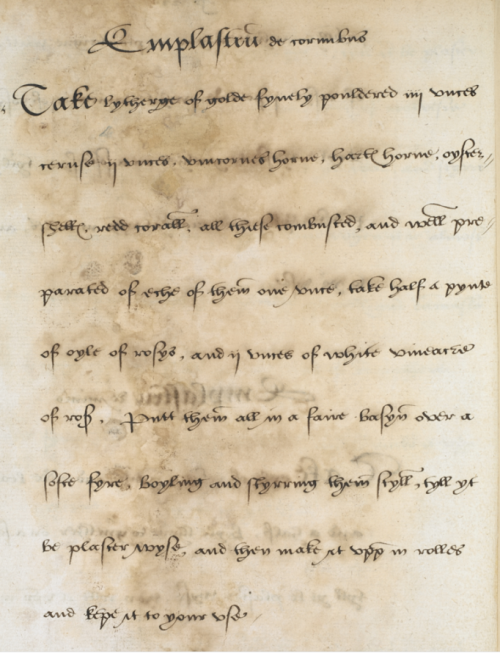 Emplastrū de cornibus
Take lytherge of golde fynely pouldered iiij vnces
ceruse ij vnces, vnicornes horne, hartꝭ horne, oyster=
shellꝭ, redd corall, all thiese combusted, and well pre=
parated of eche of them̄ one vnce, take half a pynte
of oyle of rosys, and ij vnces of white vineacre
of rosꝭ. Putt them̄ all in a faire basyn̄ over a
softe fyre, boyling and styrring them̄ styll, tyll yt
be plaster wyse, and then make it vpp in rolles
and kepe it to your vse